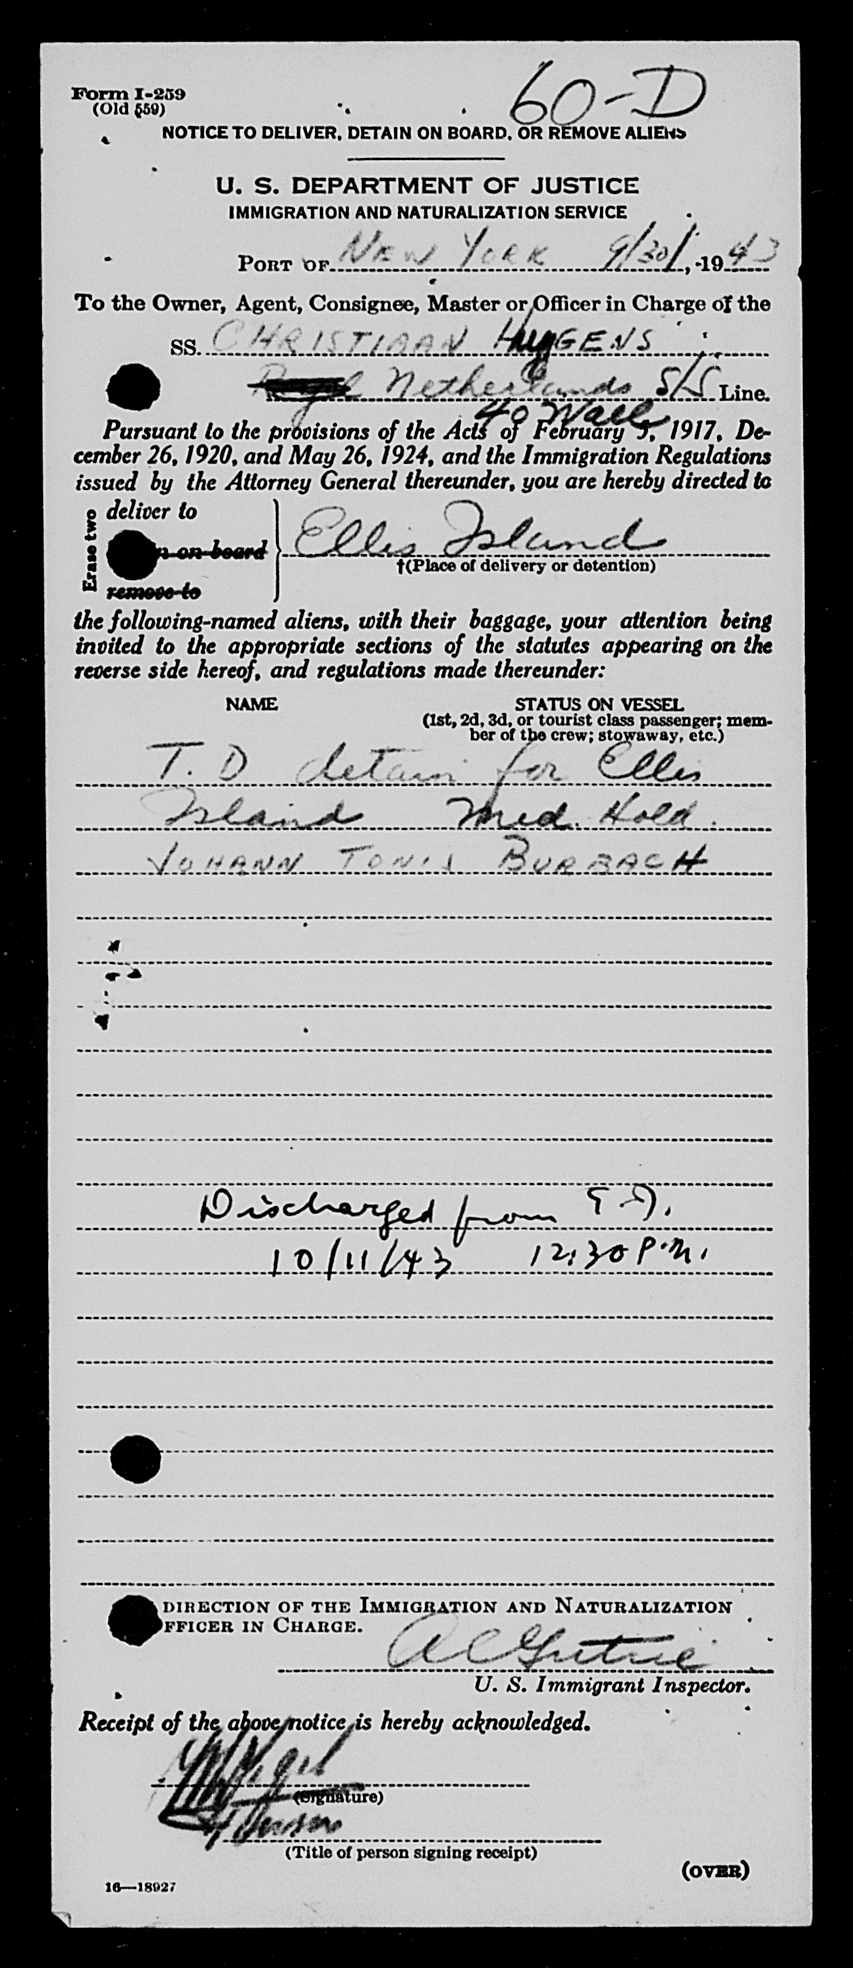 Form I-259
(Old 559)
60-D
NOTICE TO DELIVER, DETAIN ON BOARD, OR REMOVE ALIENS
U. S. DEPARTMENT OF JUSTICE
IMMIGRATION AND NATURALIZATION SERVICE
PORT OF NEW YORK 9/30/, 1943
To the Owner, Agent, Consignee, Master or Officer in Charge of the
SS. CHRISTIAAN HUYGENS
Netherlands S/S Line.
40 Wall
Pursuant to the provisions of the Acts of February 5, 1917, De-
cember 26, 1920, and May 26, 1924, and the Immigration Regulations
issued by the Attorney General thereunder, you are hereby directed to
Erase two
deliver to
n on board
remove to
Ellis Island
†(Place of delivery or detention)
the following-named aliens, with their baggage, your attention being
invited to the appropriate sections of the statutes appearing on the
reverse side hereof, and regulations made thereunder:
NAME STATUS ON VESSEL
(1st, 2d, 3d, or tourist class passenger; mem-
ber of the crew; stowaway, etc.)
T. D detain for Ellis
Island Med. Hold.
JOHANN TONIS BURBACH
Discharged from T.D.
10/11/43 12:30 P.M.
DIRECTION OF THE IMMIGRATION AND NATURALIZATION
FFICER IN CHARGE.
A C Guthrie
U. S. Immigrant Inspector.
Receipt of the above notice is hereby acknowledged.
(Signature)
(Title of person signing receipt)
(OVER)
16—18927